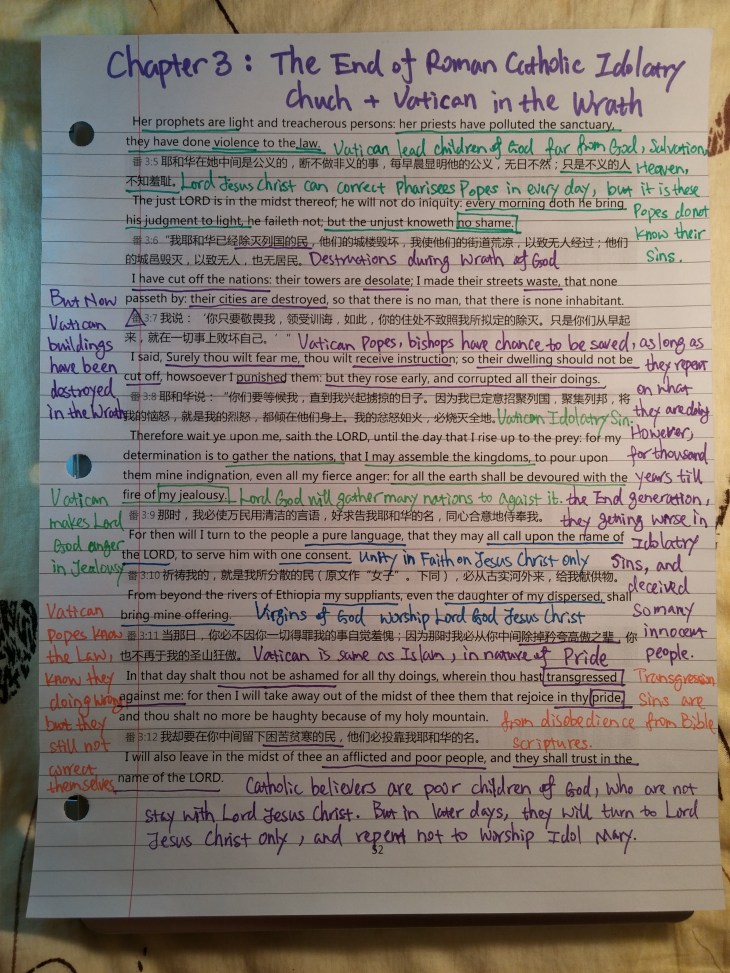 Chapter 3 : The End of Roman Catholic Idolatry
Chuch + Vatican in the Wrath
Her prophets are light and treacherous persons: her priests have polluted the sanctuary,
they have done violence to the law. Vatican lead children of God far from God, Salvation,
番 3:5 耶和华在她中间是公义的，断不做非义的事，每早晨显明他的公义，无日不然；只是不义的人 Heaven,
不知羞耻。 Lord Jesus Christ can correct Pharisees Popes in every day, but it is these
The just LORD is in the midst thereof; he will not do iniquity: every morning doth he bring Popes do not
his judgment to light, he faileth not; but the unjust knoweth no shame. know their
番 3:6 “我耶和华已经除灭列国的民，他们的城楼毁坏，我使他们的街道荒凉，以致无人经过；他们
的城邑毁灭，以致无人，也无居民。 Destructions during Wrath of God Sins.
I have cut off the nations: their towers are desolate; I made their streets waste, that none
passeth by: their cities are destroyed, so that there is no man, that there is none inhabitant.
But Now
Vatican
buildings
have been
destroyed
in the Wrath
番 3:7 我说：‘你只要敬畏我，领受训诲，如此，你的住处不致照我所拟定的除灭。只是你们从早起
来，就在一切事上败坏自己。’” Vatican Popes, bishops have chance to be saved, as long as
I said, Surely thou wilt fear me, thou wilt receive instruction; so their dwelling should not be they repent
cut off, howsoever I punished them: but they rose early, and corrupted all their doings. on what
番 3:8 耶和华说：“你们要等候我，直到我兴起掳掠的日子。因为我已定意招聚列国，聚集列邦，将
我的恼怒，就是我的烈怒，都倾在他们身上。我的忿怒如火，必烧灭全地。 Vatican Idolatry Sin. they are doing
Therefore wait ye upon me, saith the LORD, until the day that I rise up to the prey: for my However,
determination is to gather the nations, that I may assemble the kingdoms, to pour upon for thousand
them mine indignation, even all my fierce anger: for all the earth shall be devoured with the years till
fire of my jealousy. Lord God will gather many nations to agaist it. the End generation,
Vatican
makes Lord
God anger
in Jealousy
番 3:9 那时，我必使万民用清洁的言语，好求告我耶和华的名，同心合意地侍奉我。 they getting worse in
For then will I turn to the people a pure language, that they may all call upon the name of Idolatry
the LORD, to serve him with one consent. Unity in Faith on Jesus Christ only Sins, and
番 3:10 祈祷我的，就是我所分散的民（原文作“女子”。下同），必从古实河外来，给我献供物。 deceived
From beyond the rivers of Ethiopia my suppliants, even the daughter of my dispersed, shall so many
bring mine offering. Virgins of God worship Lord God Jesus Christ innocent
番 3:11 当那日，你必不因你一切得罪我的事自觉羞愧；因为那时我必从你中间除掉矜夸高傲之辈，你
也不再于我的圣山狂傲。 Vatican is same as Islam, in nature of Pride people.
In that day shalt thou not be ashamed for all thy doings, wherein thou hast transgressed Transgression
against me: for then I will take away out of the midst of thee them that rejoice in thy pride, Sins are
and thou shalt no more be haughty because of my holy mountain. from disobedience from Bible
Scriptures.
Vatican
popes know
the Law,
know they
doing wrong
but they
still not
correct
themselves
番 3:12 我却要在你中间留下困苦贫寒的民，他们必投靠我耶和华的名。
I will also leave in the midst of thee an afflicted and poor people, and they shall trust in the
name of the LORD. Catholic believers are poor children of God, who are not
stay with Lord Jesus Christ. But in later days, they will turn to Lord
Jesus Christ only, and repent not to Worship Idol Mary.
52